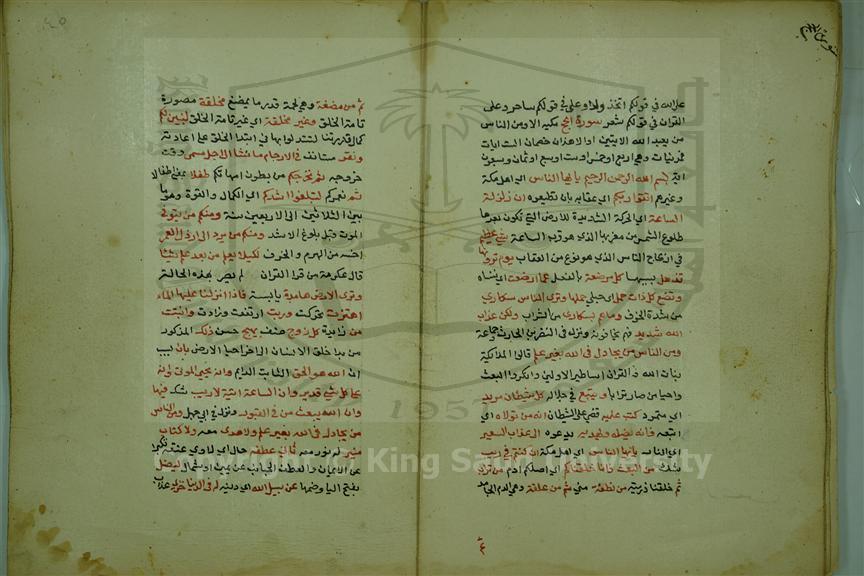 على الله في قولكم اتخذ ولدا وعلى في قولكم ساحر وعلى
القران في قولكم شعر سورة الحج مكية الا ومن الناس
من يعبد الله الايتين او الا هذان خصمان الست ايات
فمدنيات وهي اربع او خمس او ست او سبع او ثمان وسبعون
اية بسم الله الرحمن الرحيم يا ايها الناس اي اهل مكة
وغيرهم اتقوا ربكم اي عقابه بان تطيعوه ان زلزلة
الساعة اي الحركة الشديدة للارض التي يكون بعدها
طلوع الشمس من مغربها الذي هو قرب الساعة شي عظيم
في ازعاج الناس الذي هو نوع من العقاب يوم ترونها
تذهل بسببها كل مرضعة بالفعل عما ارضعت اي تنساه
وتضع كل ذات حمل اي حبلى حملها وترى الناس سكارى
من شدة الخوف وما هم بسكارى من الشراب ولكن عذاب
الله شديد فهم يخافونه ونزل في النضر بن الحارث وجماعة
ومن الناس من يجادل في الله بغير علم قالوا الملائكة
بنات الله والقران اساطير الاولين وانكروا البعث
واحيا من صار ترابا ويتبع في جداله كل شيطان مريد
اي متمرد كتب عليه قضي على الشيطان انه من تولاه اي
اتبعه فانه يضله ويهديه يدعوه الى عذاب السعير
اي النار يا ايها الناس اي اهل مكة ان كنتم في ريب
شك من البعث فانا خلقناكم اي اصلكم ادم من تراب
ثم خلقنا ذريته من نطفة مني ثم من علقة وهي الدم الجامد
٤٥
ثم من مضغة وهي لحمة قدر ما يمضغ مخلقة مصورة
تامة الخلق وغير مخلقة اي غير تامة الخلق لنبين لكم
كمال قدرتنا لتستدلوا بها في ابتدا الخلق على اعادته
ونقر مستانف في الارحام ما نشا الى اجل مسمى وقت
خروجه ثم نخرجكم من بطون امهاتكم طفلا بمعنى اطفالا
ثم نعمركم لتبلغوا اشدكم اي الكمال والقوة وهو ما
بين الثلاثين الى الاربعين سنة ومنكم من يتوفى
يموت قبل بلوغ الاشد ومنكم من يرد الى ارذل العمر
اخسه من الهرم والخرف لكيلا يعلم من بعد علم شيئا
قال عكرمة من قرا القران لم يصر بهذه الحالة
وترى الارض هامدة يابسة فاذا انزلنا عليها الماء
اهتزت تحركت وربت ارتفعت وزادت وانبتت
من زايدة كل زوج صنف بهيج حسن ذلك المذكور
من بدا خلق الانسان الى اخر احيا الارض بان بسبب
ان الله هو الحق الثابت الدايم وانه يحيي الموتى وانه
على كل شي قدير وان الساعة اتية لا ريب شك فيها
وان الله يبعث من في القبور ونزل في ابي جهل ومن الناس
من يجادل في الله بغير علم ولا هدى معه ولا كتاب
منير له نور معه ثاني عطفه حال اي لاوي عنقه تكبرا
عن الايمان والعطف الجانب عن يمين او شمال ليضل
بفتح اليا وضمها عن سبيل الله اي دينه له في الدنيا خزي عذاب
King Sa University
1957